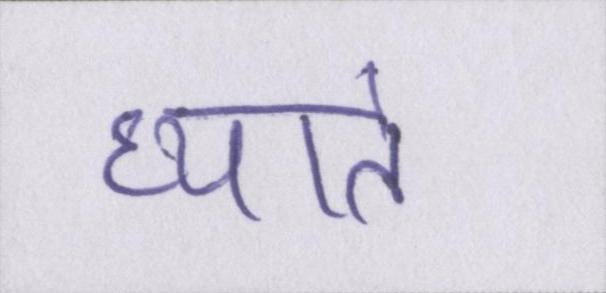 ध्याते